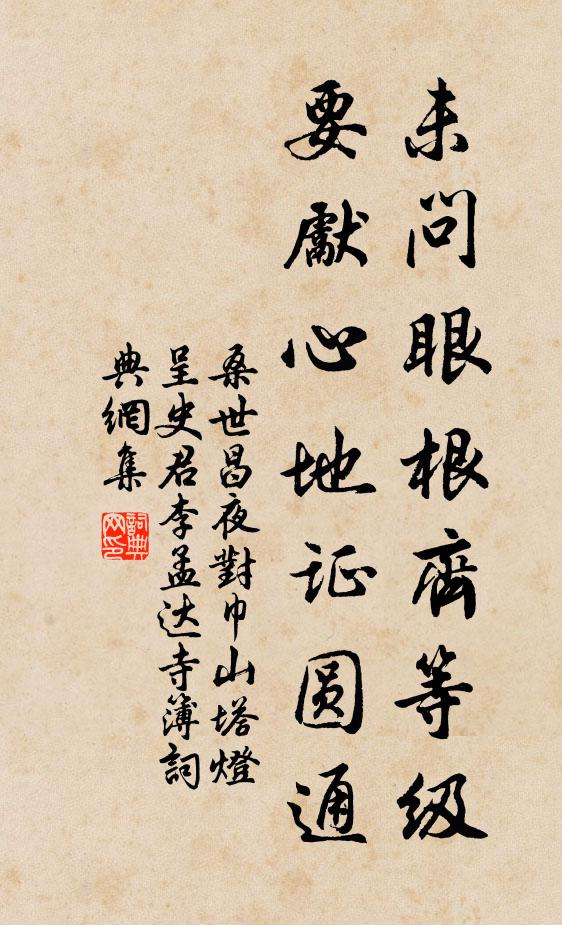 未问眼根齊等级
要獻心地证圆通
桑世昌夜對巾山塔燈
呈史君李孟达寺簿詞
典網集
詞典网印